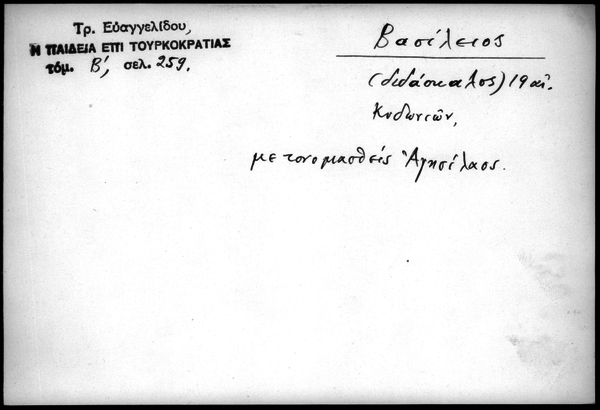 Τρ. Εὐαγγελίδου,
Η ΠΑΙΔΕΙΑ ΕΠΙ ΤΟΥΡΚΟΚΡΑΤΙΑΣ
τόμ. Β', σελ. 259.
Βασίλειος
(διδάσκαλος) 19 αἰ.
Κυδωνιῶν,
μετονομασθείς Ἀγησίλαος.